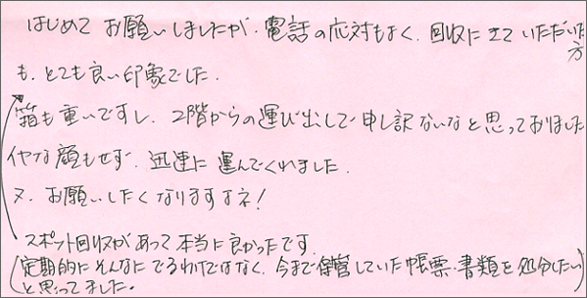 はじめて お願いしましたが、電話の応対もよく、回収にきていただいた
方
も、とても良い印象でした。
箱も重いですし、2階からの運び出しで申し訳ないなと思っておりました
イヤな顔もせず、迅速に運んでくれました。
又、お願いしたくなりますネ!
スポット回収があって本当に良かったです。
(定期的にそんなにでるわけではなく、今まで保管していた帳票・書類を処分したい
と思ってました。)